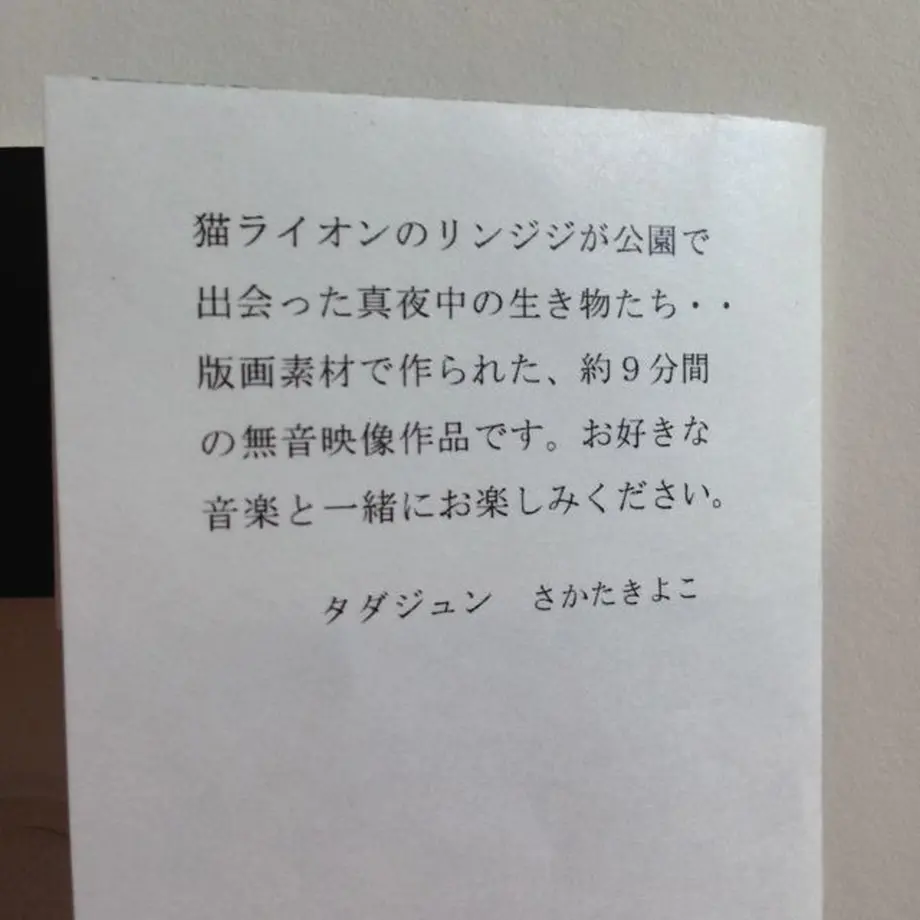 猫ライオンのリンジジが公園で
出会った真夜中の生き物たち・・
版画素材で作られた、約９分間
の無音映像作品です。お好きな
音楽と一緒にお楽しみください。
タダジュン　さかたきよこ